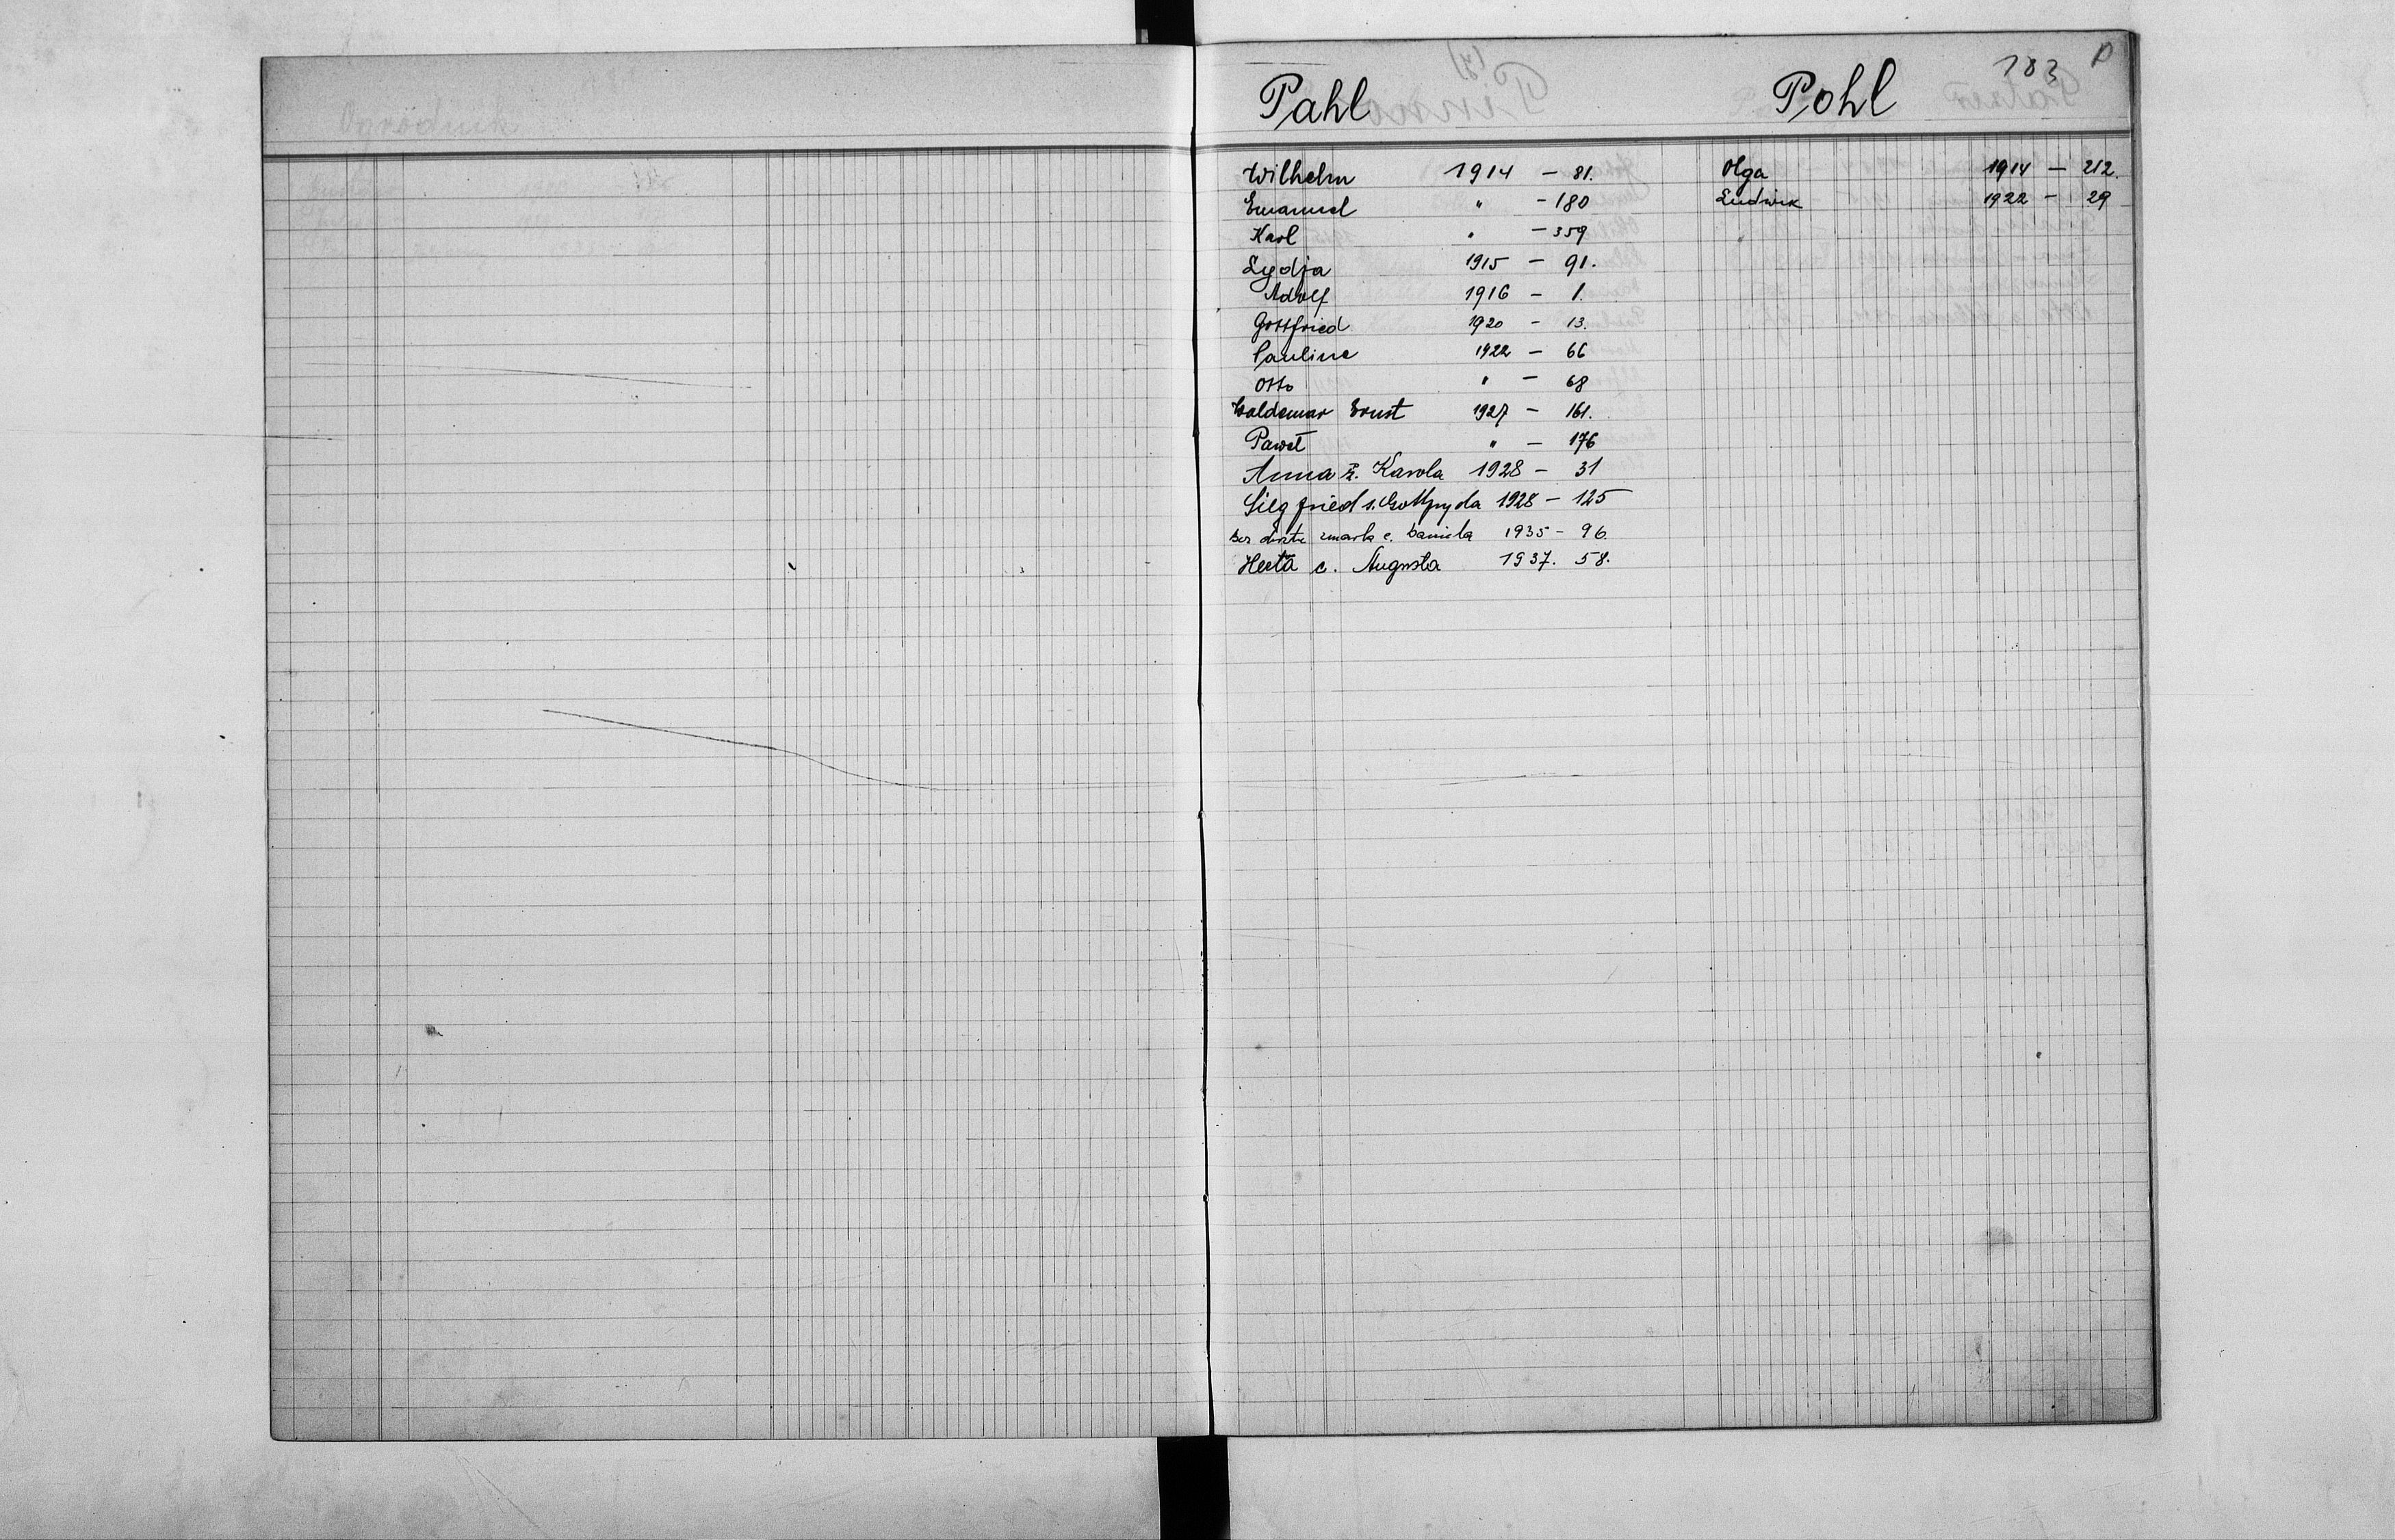 183 P
Pahl Pohl
Wilhelm 1914 - 81.
Emanuel " - 180
Karl " - 359
Lydja 1915 - 91.
Adolf 1916 - 1.
Gottfried 1920 - 13.
Pauline 1922 - 66
Otto " - 68
Waldemar Ernst 1927 - 161.
Paweł " - 176
Anna ż. Karola 1928 - 31
Siegfried s. Gottfryda 1928 - 125
zmarła c. Daniela 1935 - 96.
Herta c. Augusta 1937. 58.
Olga 1914 - 212.
Ludwik 1922 - 29
Ogrodnik